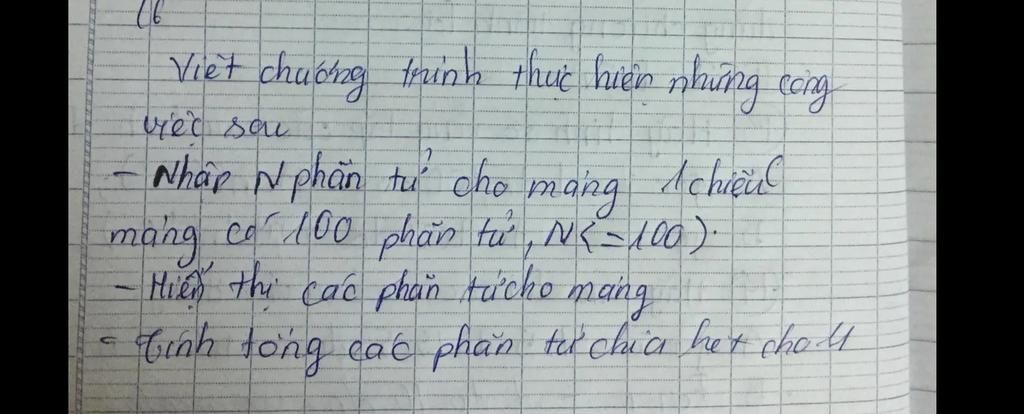 Viết chương trình thực hiện những công
việc sau
- Nhập N phần tử cho mảng 1 chiều (
mảng có 100 phần tử, N<=100).
- Hiển thị các phần tử cho mảng
- tính tổng các phần tử chia hết cho 4